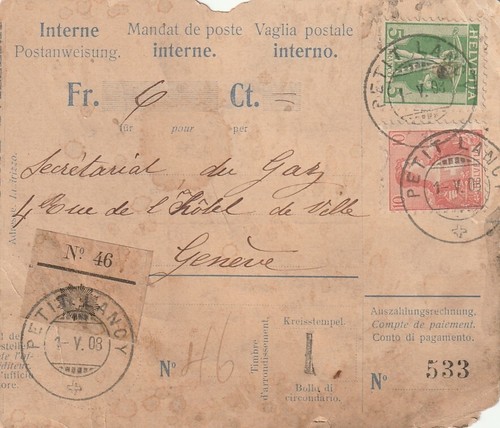 Interne Mandat de poste Vaglia postale
Postanweisung. interne. interno.
Fr. 6 Ct. =
für pour per
Secrétariat du Gaz
4 Rue de l'Hôtel de Ville
Genève
HELVETIA
5 5
10 10
PETIT LANCY
1-V.08
PETIT LANCY
1-V.08
Nº 46
PETIT LANCY
1-V.08
Nº 46
Timbre
d'arrondissement.
Kreisstempel.
1
Bollo di
circondario.
Auszahlungsrechnung.
Compte de paiement.
Conto di pagamento.
Nº 533